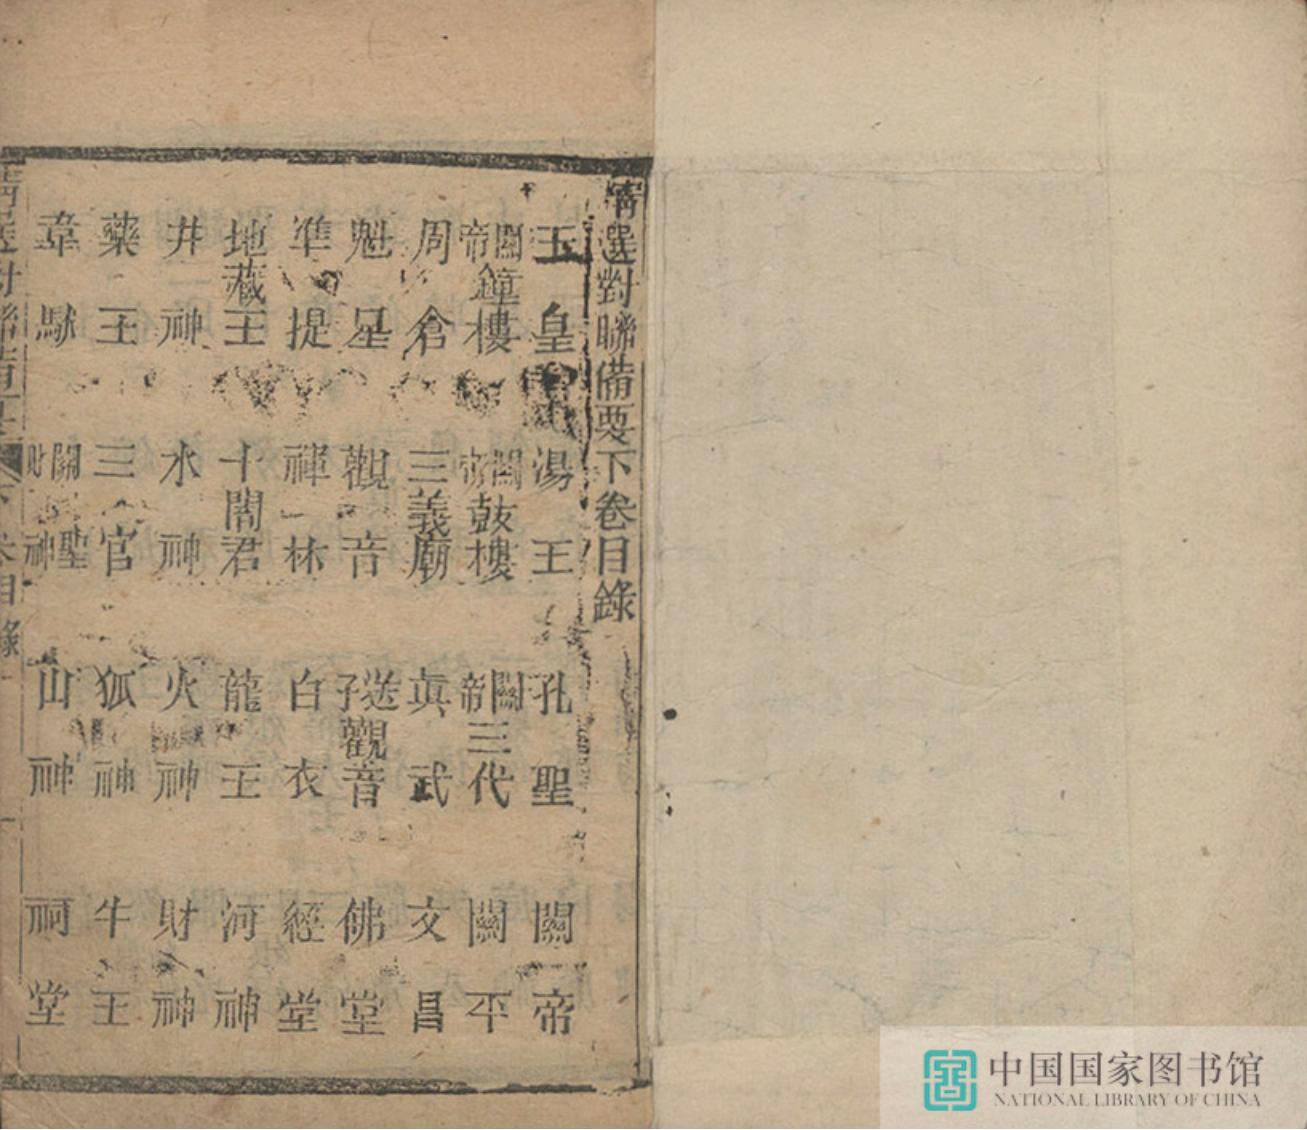 精選對聯備要下卷目錄
玉皇 湯王 孔聖 關帝
關帝鐘樓 關帝鼓樓 關帝三代 關平
周倉 三義廟 真武 文昌
魁星 觀音 送子觀音 佛堂
準提 禪林 白衣 經堂
地藏王 十閻君 龍王 河神
井神 水神 火神 財神
藥王 三官 狐神 牛王
韋馱 關聖財神 山神 祠堂
下卷目錄 一
中国国家图书馆
NATIONAL LIBRARY OF CHINA